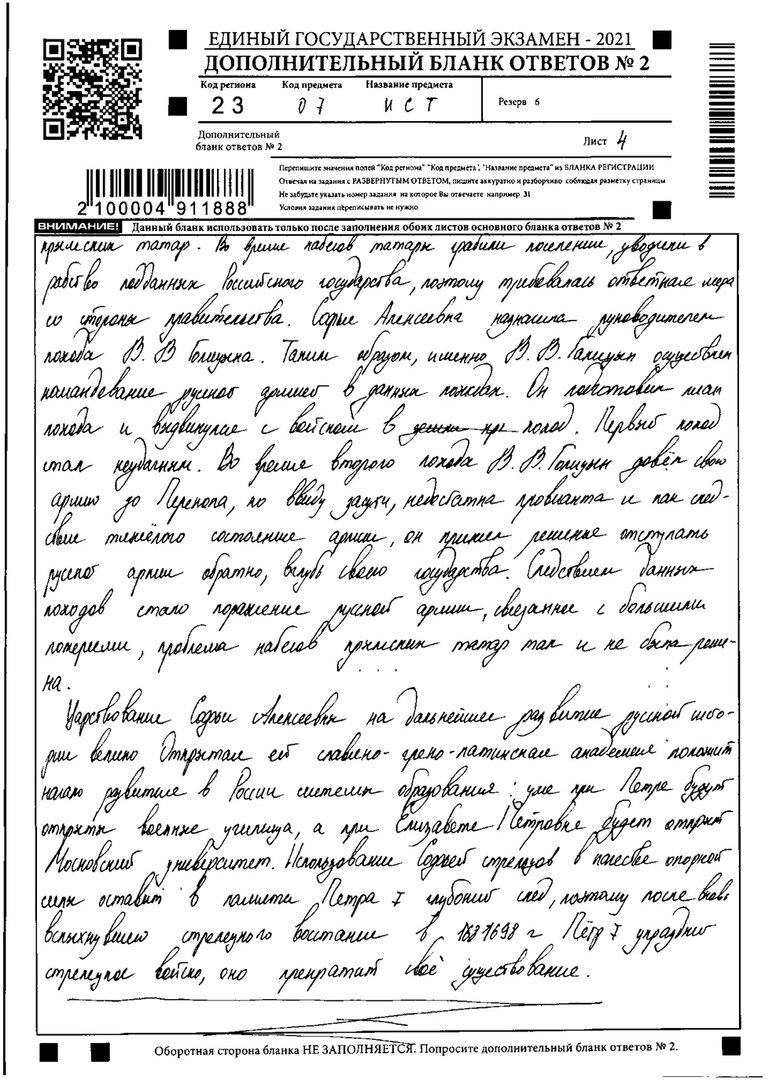 ЕДИНЫЙ ГОСУДАРСТВЕННЫЙ ЭКЗАМЕН - 2021
ДОПОЛНИТЕЛЬНЫЙ БЛАНК ОТВЕТОВ № 2
Код региона Код предмета Название предмета
23 07 ИСТ Резерв 6
Дополнительный
бланк ответов № 2
Лист 4
Перепишите значения полей "Код региона" "Код предмета", "Название предмета" из БЛАНКА РЕГИСТРАЦИИ
Отвечая на задания с РАЗВЕРНУТЫМ ОТВЕТОМ, пишите аккуратно и разборчиво соблюдая разметку страницы
Не забудьте указать номер задания на которое Вы отвечаете например 31
Условия задания переписывать не нужно
2 100004 911888
ВНИМАНИЕ! Данный бланк использовать только после заполнения обоих листов основного бланка ответов № 2
крымских татар. Во время набегов татары грабили поселения, уводили в
рабство подданных Российского государства, поэтому требовалась ответная мера
со стороны правительства. Софья Алексеевна назначила руководителем
похода В. В Голицына. Таким образом, именно В. В. Голицын осуществлял
командование русской армией в данных походах. Он подготовил план
похода и выдвинулся с войском в поход. Первый поход
стал неудачным. Во время второго похода В. В. Голицын довёл свою
армию до Перекопа, но ввиду засухи, недостатка провианта и как след-
ствие тяжёлого состояния армии, он принял решение отступать
русской армии обратно, вглубь своего государства. Следствием данных
походов стало поражение русской армии, связанное с большими
потерями, проблема набегов крымских татар так и не была реше-
на.
Царствование Софьи Алексеевны на дальнейшее развитие русской исто-
рии велико Открытая ей славяно-греко-латинская академия положит
начало развитию в России системы образования: уже при Петре будут
открыты военные училища, а при Елизавете Петровне будет открыт
Московский университет. Использование Софьей стрельцов в качестве опорной
силы оставит в памяти Петра I глубокий след, поэтому после вновь
вспыхнувшего стрелецкого восстания в 1698 г Пётр I упразднит
стрелецкое войско, оно прекратит своё существование.
Оборотная сторона бланка НЕ ЗАПОЛНЯЕТСЯ. Попросите дополнительный бланк ответов № 2.